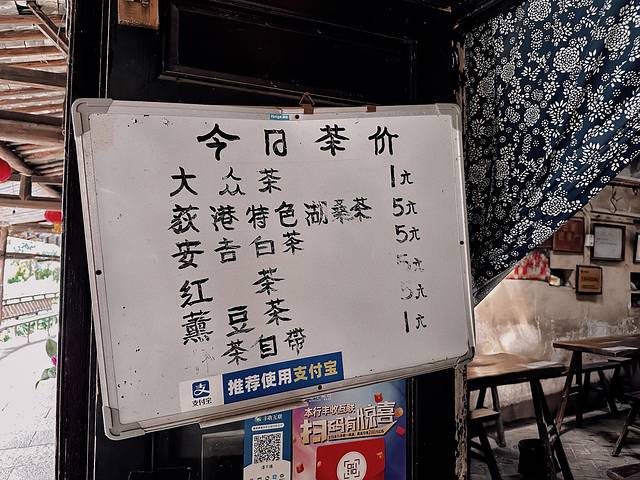 今日茶价
大众茶 1元
荻港特色湖桑茶 5元
安吉白茶 5元
红茶 5元
薰豆茶 5元
茶自帶 1元
支付宝
推荐使用支付宝
丰收互联
本行丰收互联
扫码有惊喜